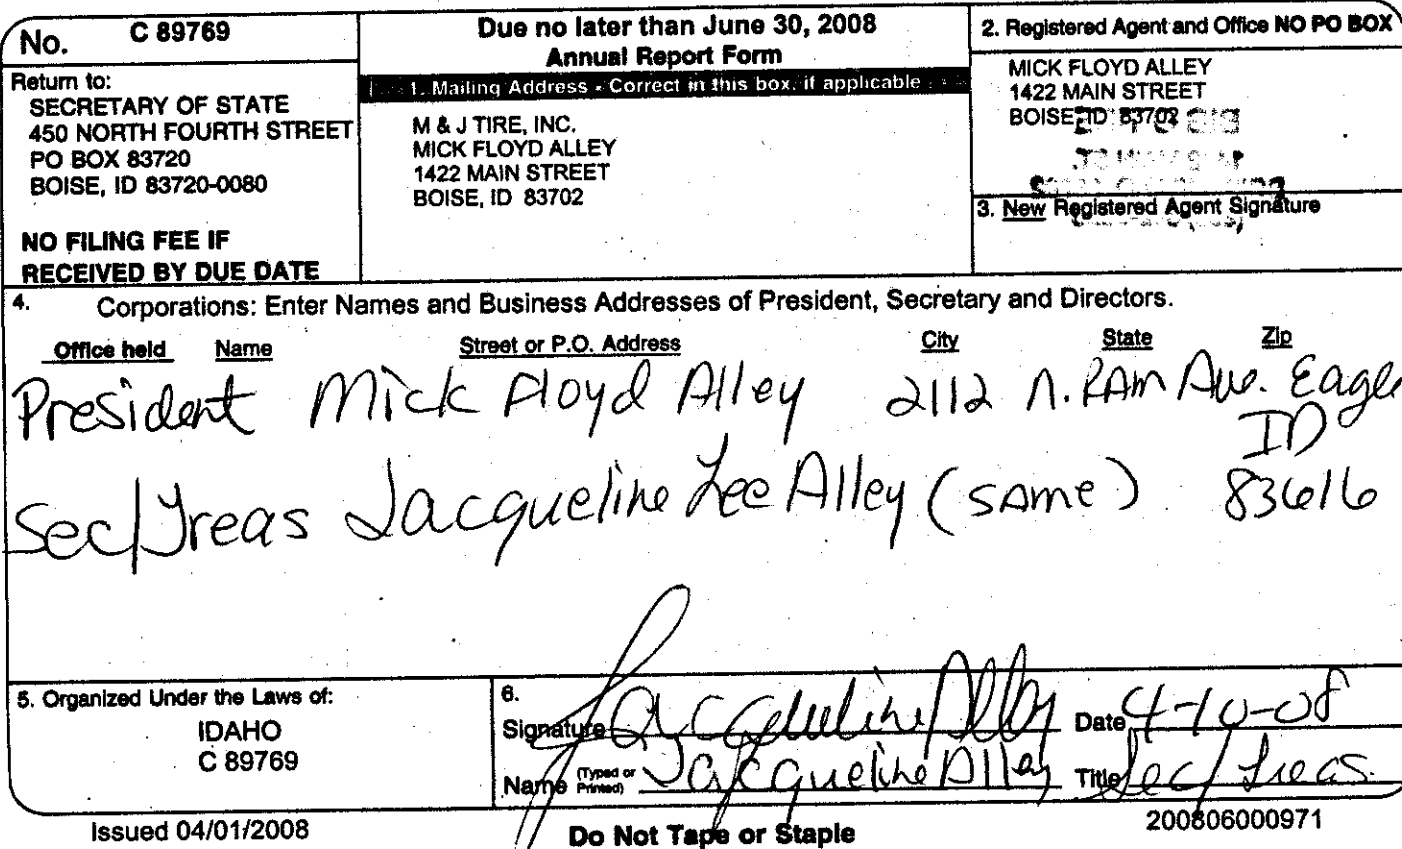 No. C 89769
Return to:
SECRETARY OF STATE
450 NORTH FOURTH STREET
PO BOX 83720
BOISE, ID 83720-0080
NO FILING FEE IF
RECEIVED BY DUE DATE
Due no later than June 30, 2008
Annual Report Form
1. Mailing Address - Correct in this box, if applicable
M & J TIRE, INC.
MICK FLOYD ALLEY
1422 MAIN STREET
BOISE, ID 83702
2. Registered Agent and Office NO PO BOX
MICK FLOYD ALLEY
1422 MAIN STREET
BOISE, ID 83702
3. New Registered Agent Signature
4. Corporations: Enter Names and Business Addresses of President, Secretary and Directors.
Office held Name Street or P.O. Address City State Zip
President Mick Floyd Alley 2112 N. RAM Ave. Eagle
ID
Sec/Treas Jacqueline Lee Alley (same) 83616
5. Organized Under the Laws of:
IDAHO
C 89769
6.
Signature Jacqueline Alley Date 4-10-08
Name (Typed or Printed) Jacqueline Alley Title Sec/Treas.
Issued 04/01/2008 Do Not Tape or Staple 200806000971